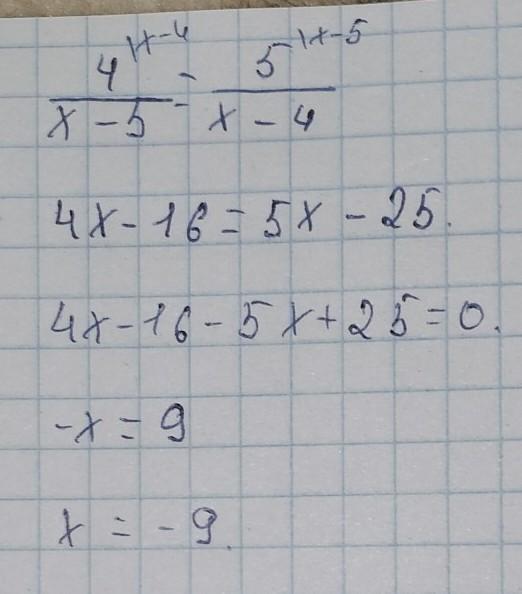 4^{\x-4}/(x-5) = 5^{\x-5}/(x-4)
4x-16=5x-25.
4x-16-5x+25=0.
-x=9
x=-9.